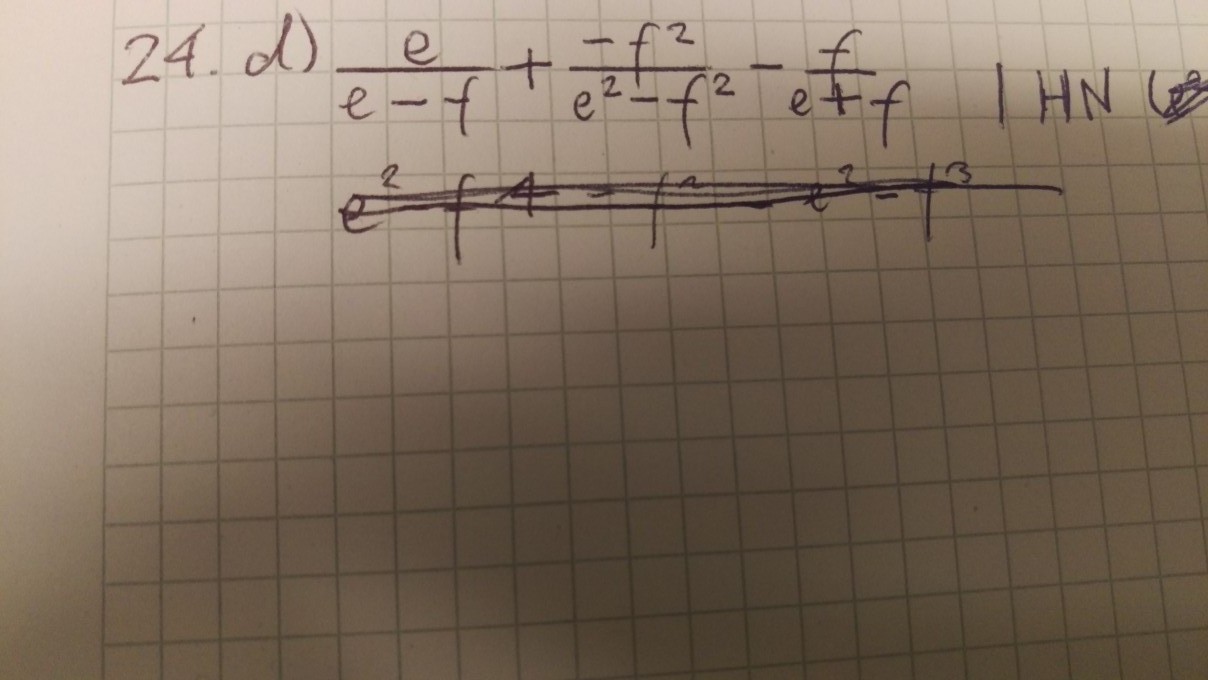 24. d) e/(e - f) + -f²/(e² - f²) - f/(e + f) | HN (